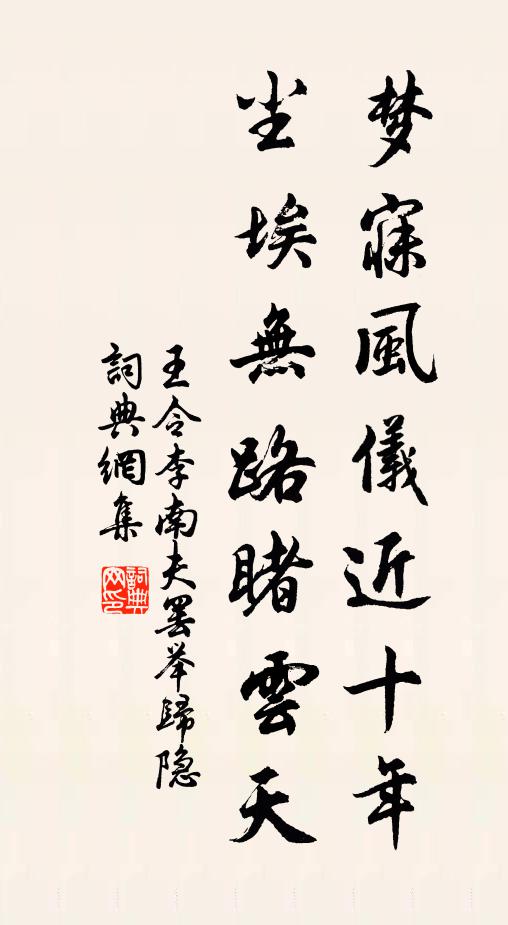 梦寐風儀近十年
尘埃無路睹雲天
王令李南夫罢举歸隐
詞典網集
詞典网印